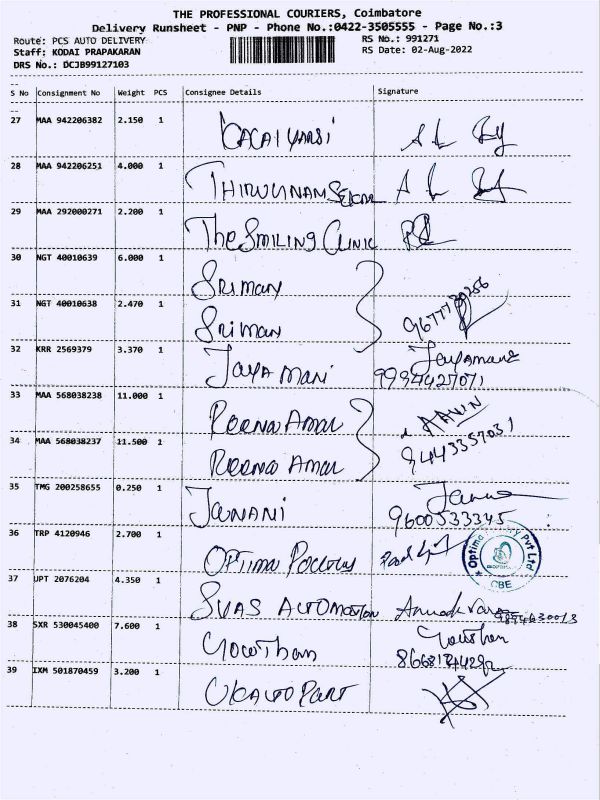 THE PROFESSIONAL COURIERS, Coimbatore
Delivery Runsheet - PNP - Phone No.:0422-3505555 - Page No.:3
Route: PCS AUTO DELIVERY RS No.: 991271
Staff: KODAI PRAPAKARAN RS Date: 02-Aug-2022
DRS No.: DCJB99127103
S No Consignment No Weight PCS Consignee Details Signature
27 MAA 942206382 2.150 1
28 MAA 942206251 4.000 1
29 MAA 292000271 2.200 1 The SMILING CLINIC
30 NGT 40010639 6.000 1 Sriman
31 NGT 40010638 2.470 1 Sriman
9677130256
32 KRR 2569379 3.370 1 JAYA Mani Jayamani
9994427071
33 MAA 568038238 11.000 1 Poorna Amar
34 MAA 568038237 11.500 1 Poorna Amar 9443357031
35 TMG 200258655 0.250 1 JANANI
9600533345
36 TRP 4120946 2.700 1 OPTima
CBE
37 UPT 2076204 4.350 1 SVAS AUTOMATION
38 SXR 530045400 7.600 1 Gowthan
39 IXM 501870459 3.200 1 UK AUTO PART